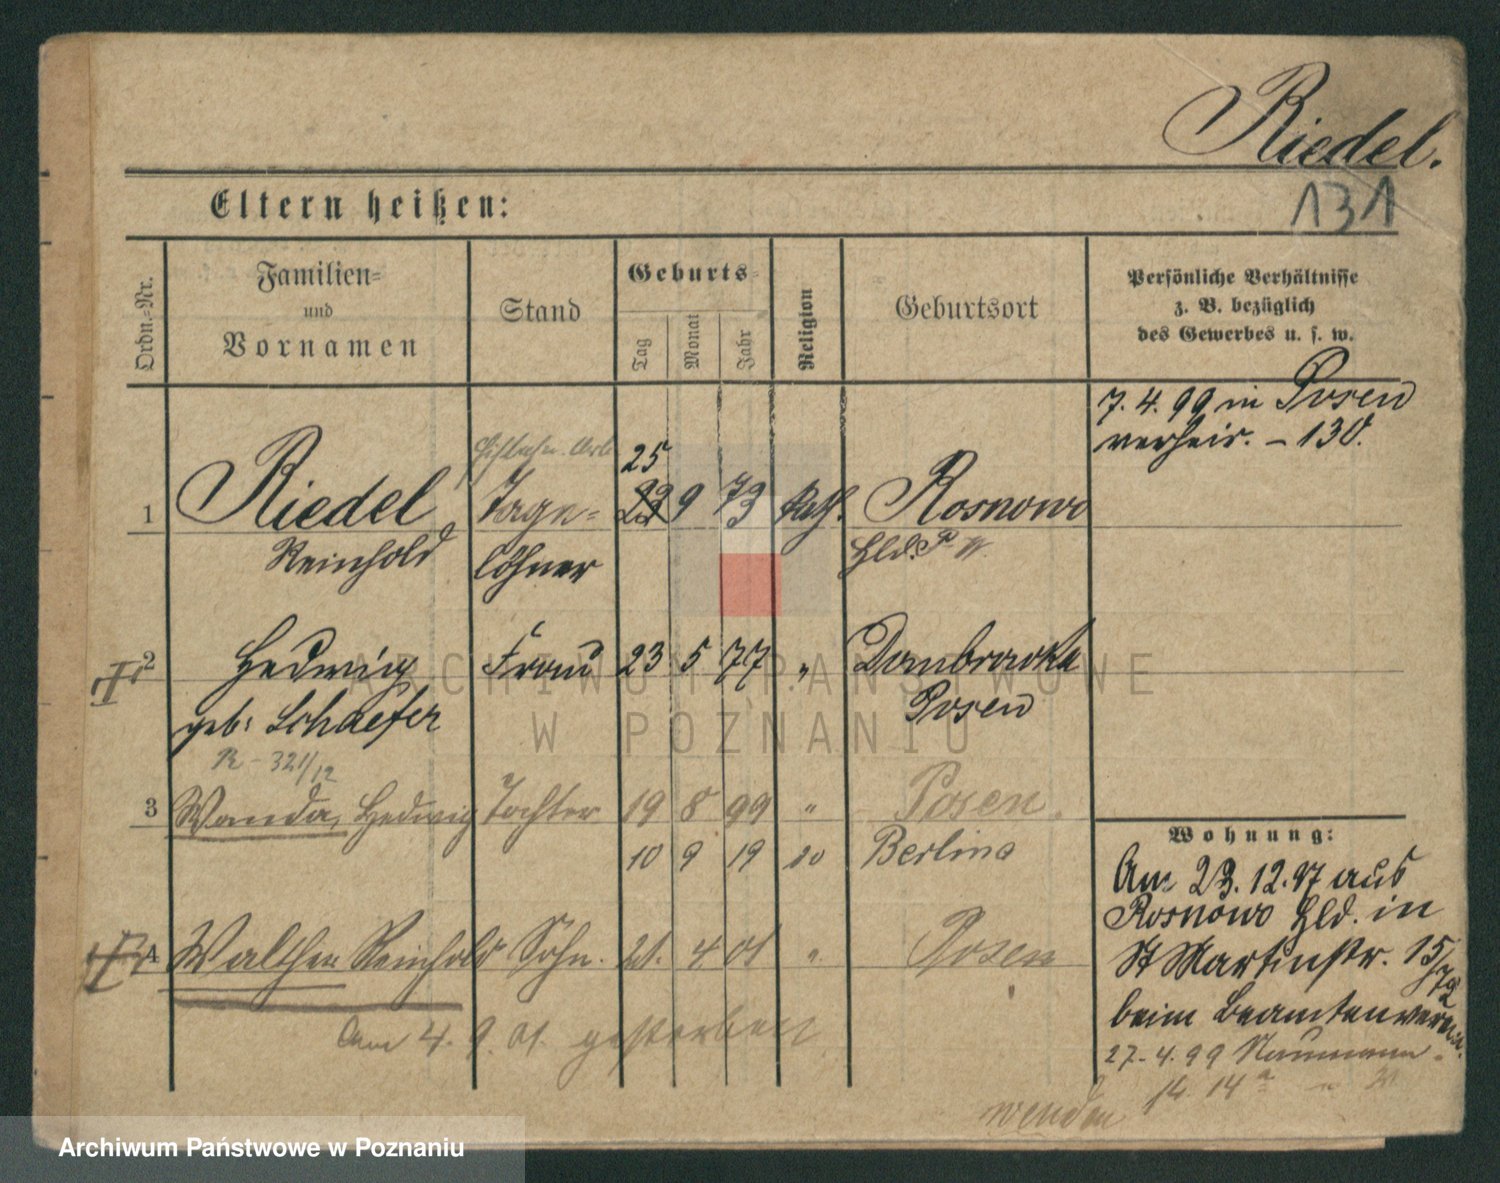 Riedel.
131
Eltern heißen:
Ordn.-Nr.
Familien-
und
Vornamen
Stand
Geburts-
Tag
Monat
Jahr
Religion
Geburtsort
Persönliche Verhältnisse
z. B. bezüglich
des Gewerbes u. s. w.
7. 4. 99 in Posen
verheir. – 130.
25
1 Riedel Tage- 23 9 73 Kath. Rosnowo
Reinhold löhner Hld. P. W.
2 Hedwig Frau 23 5 77 " Dombrowka
geb: Schaefer Posen
R – 321/12
3 Wanda, Hedwig Tochter 19 8 99 " Posen.
10 9 19 Berlin
Wohnung:
Am 23. 12. 97 aus
Rosnowo Hld. in
St Martinstr. 15/72
beim Beamtenverein.
27. 4. 99 Naumann
14 14a
4 Walther Reinhold Sohn. 21. 4 01 " Posen
Am 4. 9. 01. gestorben
wenden
ARCHIWUM PAŃSTWOWE
W POZNANIU
Archiwum Państwowe w Poznaniu